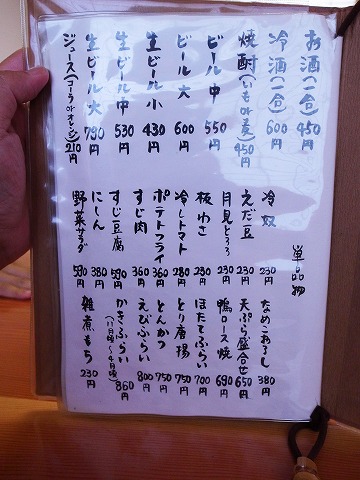 お酒(一合) 450円
冷酒(一合) 600円
焼酎(いもor麦) 450円
ビール 中 550円
ビール 大 600円
生ビール 小 430円
生ビール 中 530円
生ビール 大 790円
ジュース(コーラorオレンジ) 210円
単品物
冷奴 230円
えだ豆 230円
月見とろろ 230円
板わさ 230円
冷しトマト 280円
ポテトフライ 360円
すじ肉 360円
すじ豆腐 590円
にしん 380円
野菜サラダ 590円
なめこおろし 380円
天ぷら盛合せ 650円
鴨ロース焼 690円
ほたてふらい 700円
とり唐揚 750円
とんかつ 750円
えびふらい 800円
かきふらい(11月頃〜4月頃) 860円
雑煮もち 230円